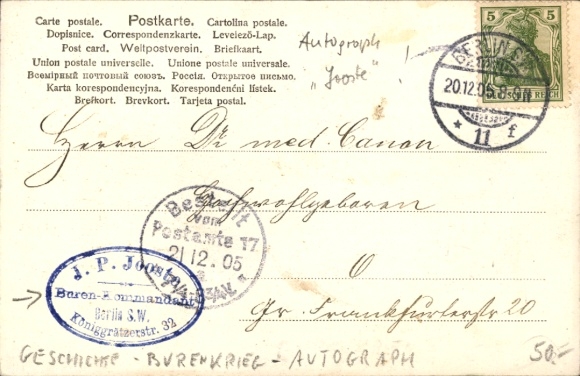 Carte postale. Postkarte. Cartolina postale.
Dopisnice. Correspondenzkarte. Levelező-Lap.
Post card. Weltpostverein. Briefkaart.
Union postale universelle. Unione postale universale.
Всемірный почтовый союзъ. Россія. Открытое письмо.
Karta korespondencyjna. Korespondenční lístek.
Brefkort. Brevkort. Tarjeta postal.
Autograph
„Jooste“ !
5 5
BERLIN
20.12.05.8-9N
* 11 f
REICH
Herrn Dr med. Canon
Hochwohlgeboren
O
Gr. Frankfurterstr 20
Bestellt
vom
Postamte 17
21.12.05
J. P. Jooste
Buren-Kommandant
Berlin S.W.
Königgrätzerstr. 32
GESCHICHTE - BURENKRIEG - AUTOGRAPH
50.-